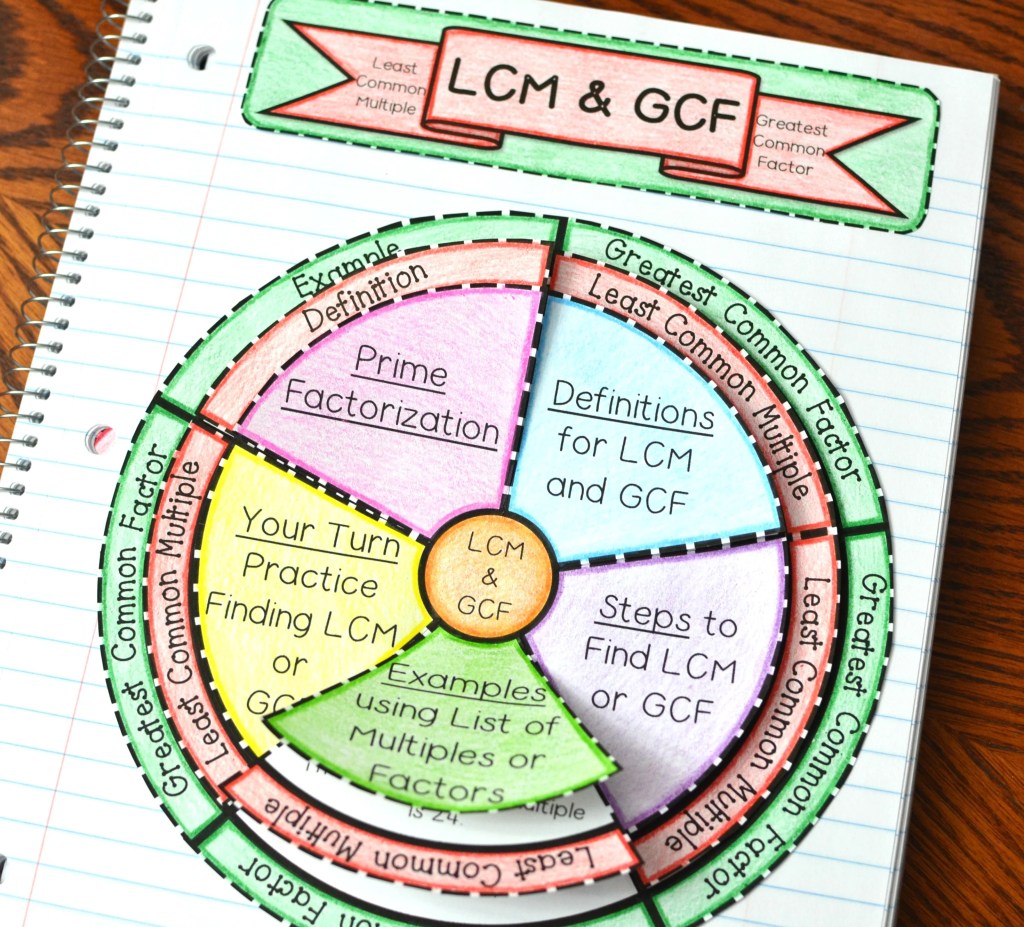 Least
Common
Multiple
LCM & GCF
Greatest
Common
Factor
Example
Definition
Prime
Factorization
Greatest Common Factor
Least Common Multiple
Definitions
for LCM
and GCF
Greatest Common Factor
Least Common Multiple
Steps to
Find LCM
or GCF
Greatest Common Factor
Least Common Multiple
Your Turn
Practice
Finding LCM
or
LCM
&
GCF
Examples
using List of
Multiples or
Factors
is 24.
Least Common Multiple
Factor